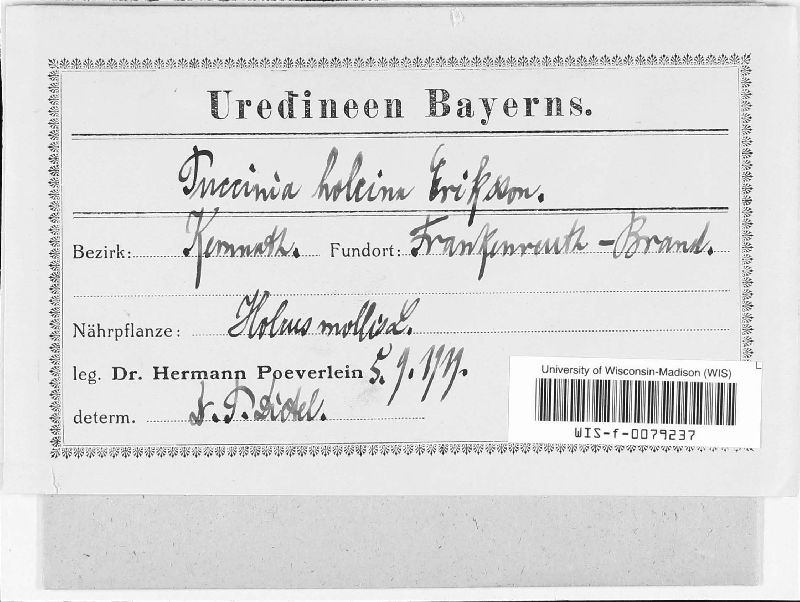 Uredineen Bayerns.
Puccinia holcina Eriksson.
Bezirk: Kemnath. Fundort: Frankenreuth – Brand.
Nährpflanze: Holcus mollis L.
leg. Dr. Hermann Poeverlein 5. 9.
determ. Dr. P. Dietel.
University of Wisconsin-Madison (WIS)
WIS-f-0079237